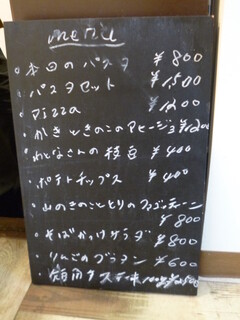 menu
・本日のパスタ ¥800
・パスタセット ¥1500
・Pizza ¥1200
・かきときのこのアヒージョ ¥1200
・わとなさんの枝豆 ¥400
・ポテトチップス ¥400
・山のきのこととりのフリカッセ
¥800
・そばがっけサラダ ¥800
・りんごのグラタン ¥600